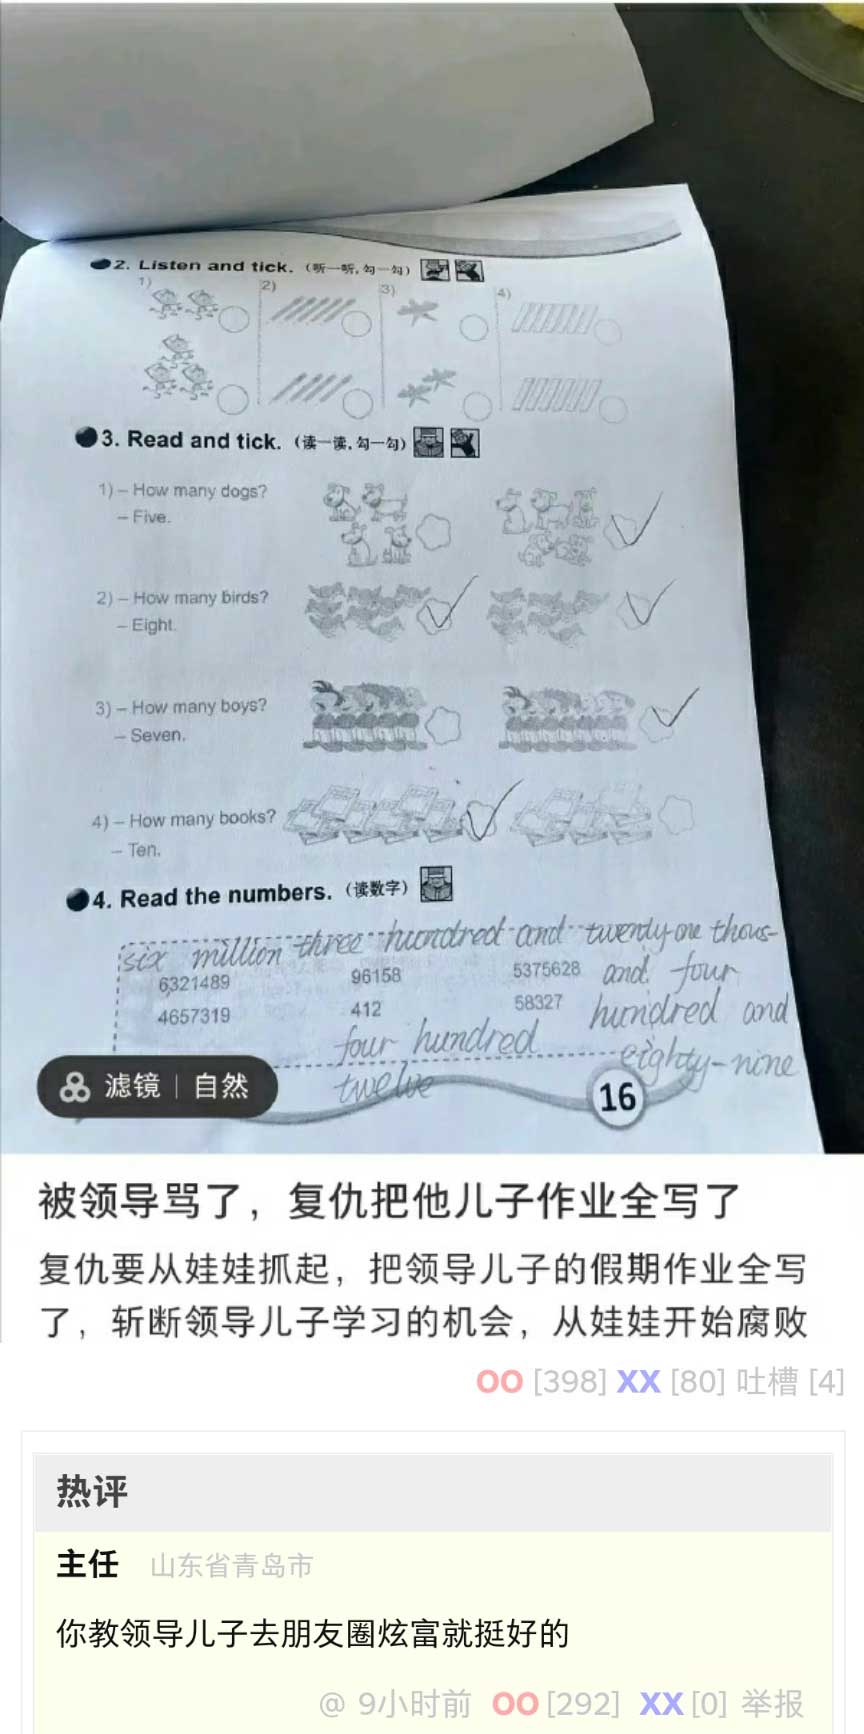 2. Listen and tick.（听一听，勾一勾）
1) 2) 3) 4)
3. Read and tick.（读一读，勾一勾）
1) – How many dogs?
– Five.
2) – How many birds?
– Eight.
3) – How many boys?
– Seven.
4) – How many books?
– Ten.
4. Read the numbers.（读数字）
six million three hundred and twenty-one thous-
6321489 96158 5375628 and four
4657319 412 58327 hundred and
four hundred eighty-nine
twelve
16
滤镜｜自然
被领导骂了，复仇把他儿子作业全写了
复仇要从娃娃抓起，把领导儿子的假期作业全写
了，斩断领导儿子学习的机会，从娃娃开始腐败
OO [398] XX [80] 吐槽 [4]
热评
主任 山东省青岛市
你教领导儿子去朋友圈炫富就挺好的
@ 9小时前 OO [292] XX [0] 举报